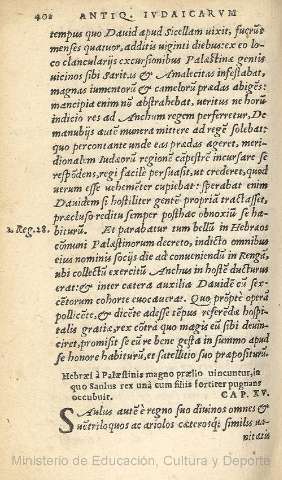 402 ANTIQ. IVDAICARVM
tempus quo Dauid apud Sicellam uixit, fuerũt
menses quatuor, additis uiginti diebus: ex eo lo-
co clancularijs excursionibus Palæstinæ gentis
uicinos sibi Saritas & Amalecitas infestabat,
magnas iumentorũ & camelorũ prædas abigẽs:
mancipia enim nõ abstrahebat, ueritus ne horũ
indicio res ad Anchum regem perferretur. De
manubijs autẽ munera mittere ad regẽ solebat:
quo percontante unde eas prædas ageret, meri-
dionalem Iudæorũ regionẽ cãpestrẽ incursare se
respõdens, regi facile persuasit, ut crederet, quod
uerum esse uehemẽter cupiebat: sperabat enim
Dauidem si hostiliter gentẽ propriã tractasset,
præcluso reditu semper posthac obnoxiũ se ha-
1. Reg. 28. biturũ. Et parabatur tum bellũ in Hebræos
cõmuni Palæstinorum decreto, indicto omnibus
eius nominis socijs die ad conueniendũ in Rengã,
ubi collectũ exercitũ Anchus in hostẽ ducturus
erat: & inter cætera auxilia Dauidẽ cũ sex-
cẽtorum cohorte euocauerat. Quo prõptè operã
pollicẽte, & dicẽte adesse tẽpus referẽdæ hospi-
talis gratiæ, rex cõtrà quo magis eũ sibi deuin-
ciret, promisit se eũ re bene gesta in summo apud
se honore habiturũ, et satellitio suo præpositurũ.
Hebræi à Palæstinis magno prælio uincuntur, in
quo Saulus rex unà cum filijs fortiter pugnans
occubuit. CAP. XV.
SAulus autẽ è regno suo diuinos omnes &
uẽtriloquos ac ariolos cæterosq́; similis ua-
nitatis
Ministerio de Educación, Cultura y Deporte